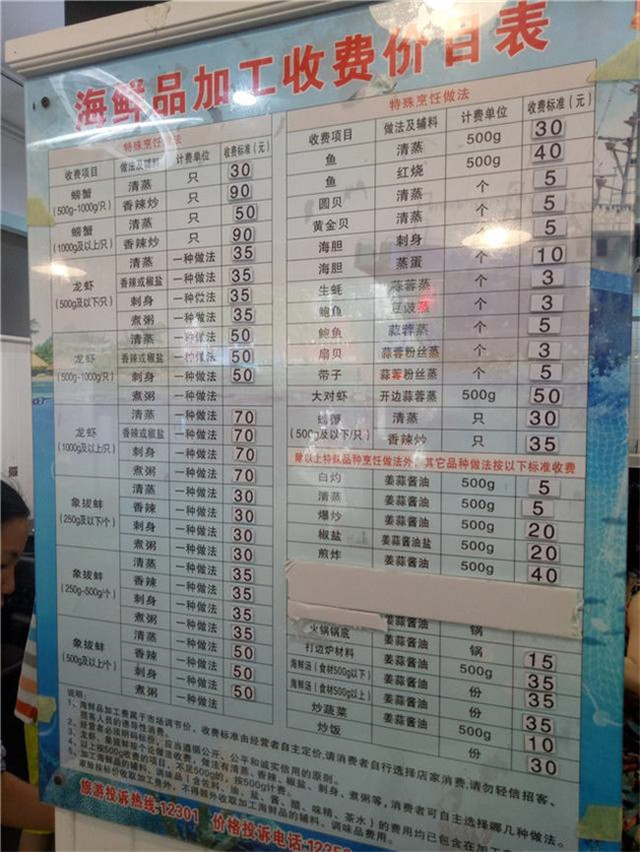 海鲜品加工收费价目表
特殊烹饪做法
收费项目 做法及辅料 计费单位 收费标准（元）
螃蟹 (500g-1000g/只) 清蒸 只 30
香辣炒 只 90
螃蟹 (1000g及以上/只) 清蒸 只 50
香辣炒 只 90
龙虾 (500g及以下/只) 清蒸 一种做法 35
香辣或椒盐 一种做法 35
刺身 一种做法 35
煮粥 一种做法 35
龙虾 (500g-1000g/只) 清蒸 一种做法 50
香辣或椒盐 一种做法 50
刺身 一种做法 50
煮粥 一种做法
龙虾 (1000g及以上/只) 清蒸 一种做法 70
香辣或椒盐 一种做法 70
刺身 一种做法 70
煮粥 一种做法 70
象拔蚌 (250g及以下/个) 清蒸 一种做法 30
香辣 一种做法 30
刺身 一种做法 30
煮粥 一种做法 30
象拔蚌 (250g-500g/个) 清蒸 一种做法 35
香辣 一种做法 35
刺身 一种做法 35
煮粥 一种做法 35
象拔蚌 (500g及以上/个) 清蒸 一种做法 50
香辣 一种做法 50
刺身 一种做法 50
煮粥 一种做法
特殊烹饪做法
收费项目 做法及辅料 计费单位 收费标准（元）
鱼 清蒸 500g 30
鱼 红烧 500g 40
圆贝 清蒸 个 5
黄金贝 清蒸 个 5
海胆 刺身 个 5
海胆 蒸蛋 个 10
生蚝 蒜蓉蒸 个 3
鲍鱼 豆豉蒸 个 3
鲍鱼 蒜蓉蒸 个 5
扇贝 蒜蓉粉丝蒸 个 3
带子 蒜蓉粉丝蒸 个 5
大对虾 开边蒜蓉蒸 500g 50
螃蟹 (500g及以下/只) 清蒸 只 30
香辣炒 只 35
除以上特殊品种烹饪做法外，其它品种做法按以下标准收费
白灼 姜蒜酱油 500g 5
清蒸 姜蒜酱油 500g 5
爆炒 姜蒜酱油 500g 20
椒盐 姜蒜酱油盐 500g 20
煎炸 姜蒜酱油 500g 40
姜蒜酱油 锅
火锅锅底 姜蒜酱油 锅 15
打边炉材料 姜蒜酱油 500g 35
海鲜汤（食材500g以下） 姜蒜酱油 份 35
海鲜汤（食材500g以上） 姜蒜酱油 份 35
炒蔬菜 姜蒜酱油 500g 10
炒饭 份 30
说明：
1、海鲜品加工费属于市场调节价，收费标准由经营者自主定价，请消费者自行选择店家消费，请勿轻信招客、
揽客人员的诱导性消费。
2、经营者必须明码标价，应当遵循公开、公平和诚实信用的原则。
3、龙虾、象拔蚌按个论做法收费，做法有清蒸、香辣、椒盐、刺身、煮粥等，消费者可自主选择哪几种做法。
4、以上按500g收费的项目，不足500g的，按500g计费。
5、加工海鲜品的辅料、调味品（含佐料、油、盐、酱、醋、味精、茶水）的费用均已包含在加工
家除按标价收取加工费外，不得额外收取加工海鲜品的辅料、调味品费用。
旅游投诉热线：12301 价格投诉电话：1235